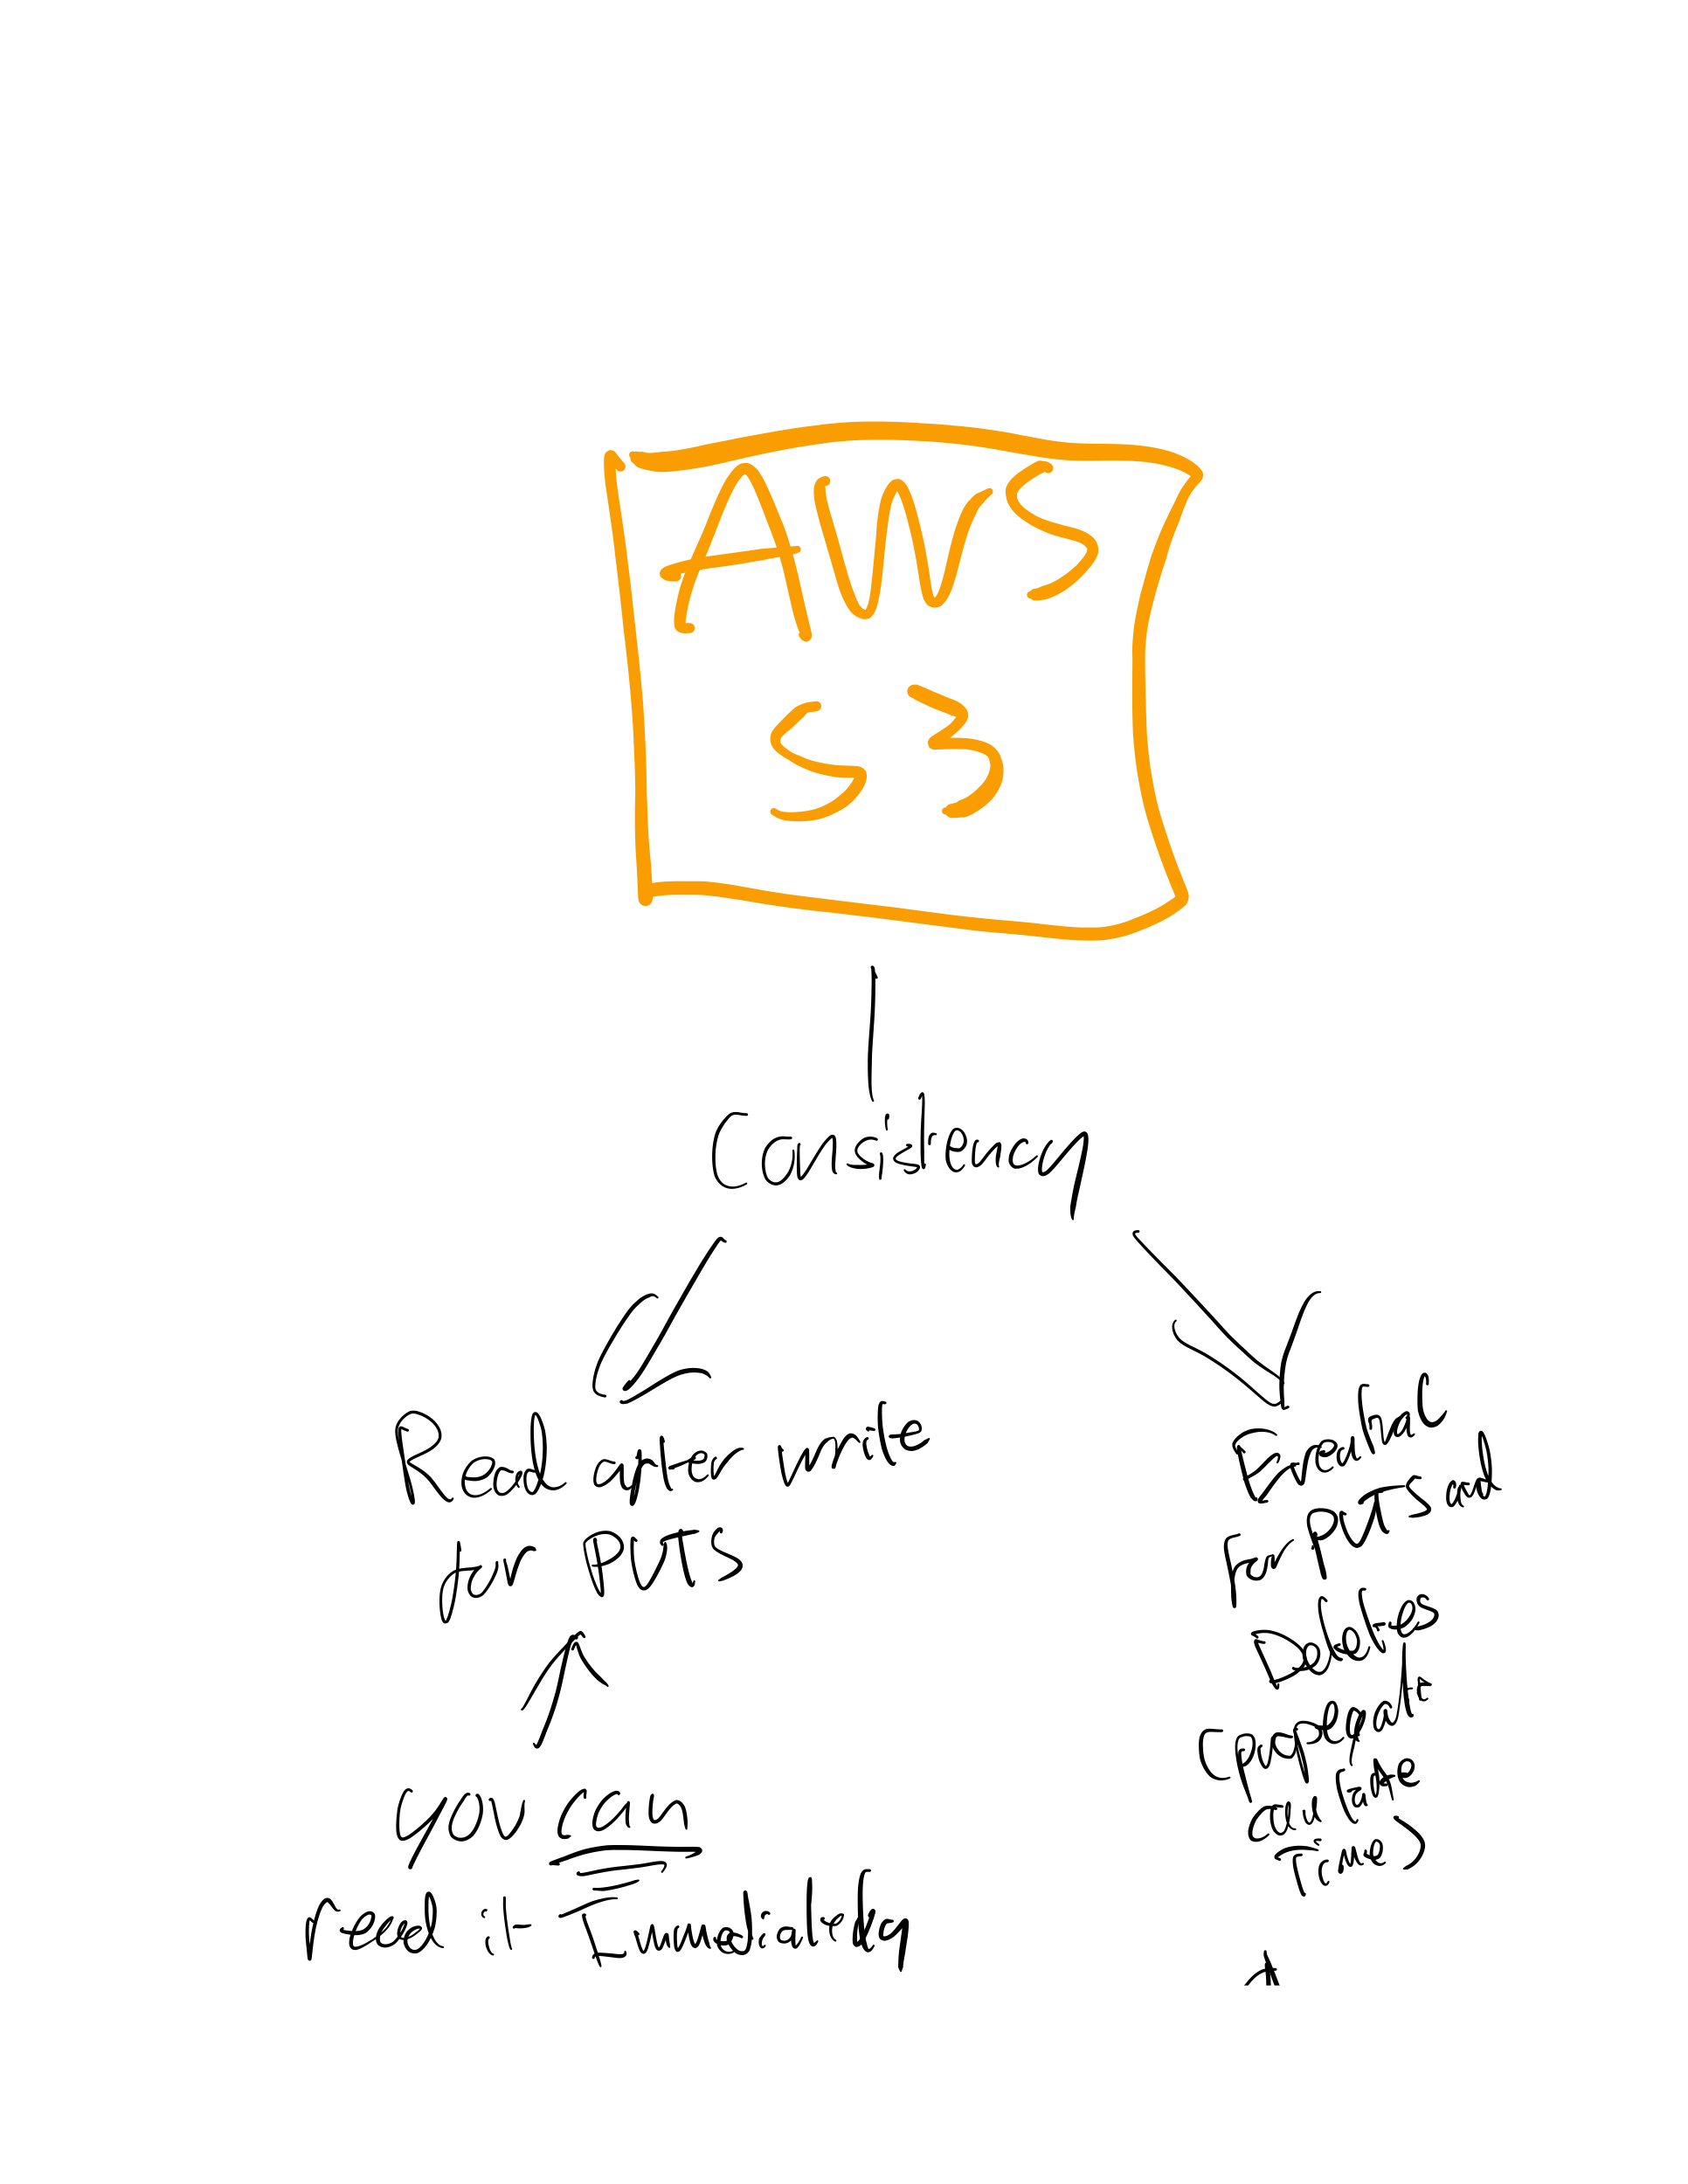 AWS
S3
Consistency
Read after write
for PUTS
you can
read it Immediatley
Evental
For PUTS and
Deletes
(propegatt
can take
Time)